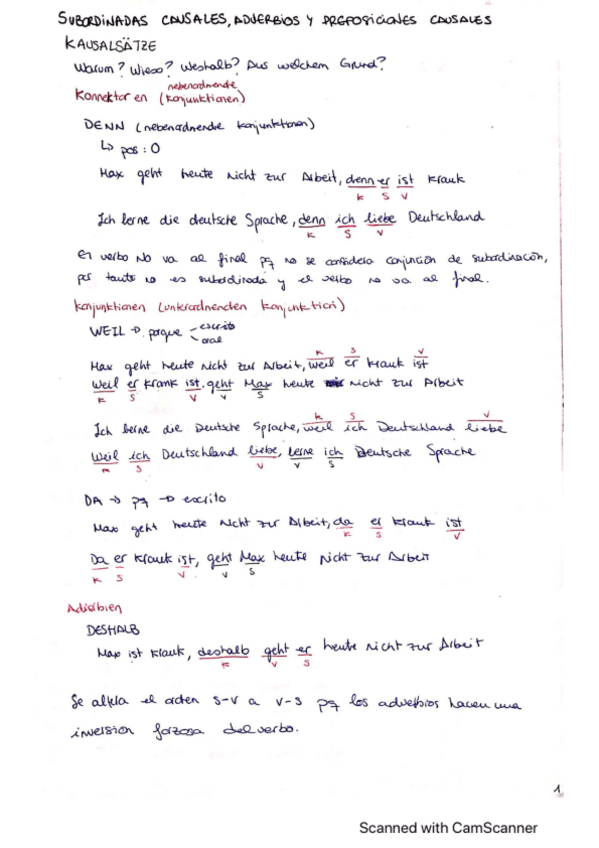 SUBORDINADAS CAUSALES, ADVERBIOS Y PREPOSICIONES CAUSALES
KAUSALSÄTZE
Warum? Wieso? Weshalb? Aus welchem Grund?
nebenordnende
Konnektoren (Konjunktionen)
DENN (nebenordnende Konjunktionen)
↳ pos: 0
Max geht heute nicht zur Arbeit, denn er ist krank
K S V
Ich lerne die deutsche Sprache, denn ich liebe Deutschland
K S V
El verbo NO va al final pq no se considera conjunción de subordinación,
por tanto no es subordinada y el verbo no va al final.
Konjunktionen (unterordnenden Konjunktion)
WEIL → porque - escrito
- oral
K S V
Max geht heute nicht zur Arbeit, weil er krank ist
Weil er krank ist, geht Max heute nicht zur Arbeit
K S V V S
K S V
Ich lerne die Deutsche Sprache, weil ich Deutschland liebe
Weil ich Deutschland liebe, lerne ich Deutsche Sprache
K S V V S
DA → pq → escrito
Max geht heute nicht zur Arbeit, da er krank ist
K S V
Da er krank ist, geht Max heute nicht zur Arbeit
K S V V S
Adverbien
DESHALB
Max ist krank, deshalb geht er heute nicht zur Arbeit
K V S
Se altera el orden S-V a V-S pq los adverbios hacen una
inversion forzosa del verbo.
1
Scanned with CamScanner